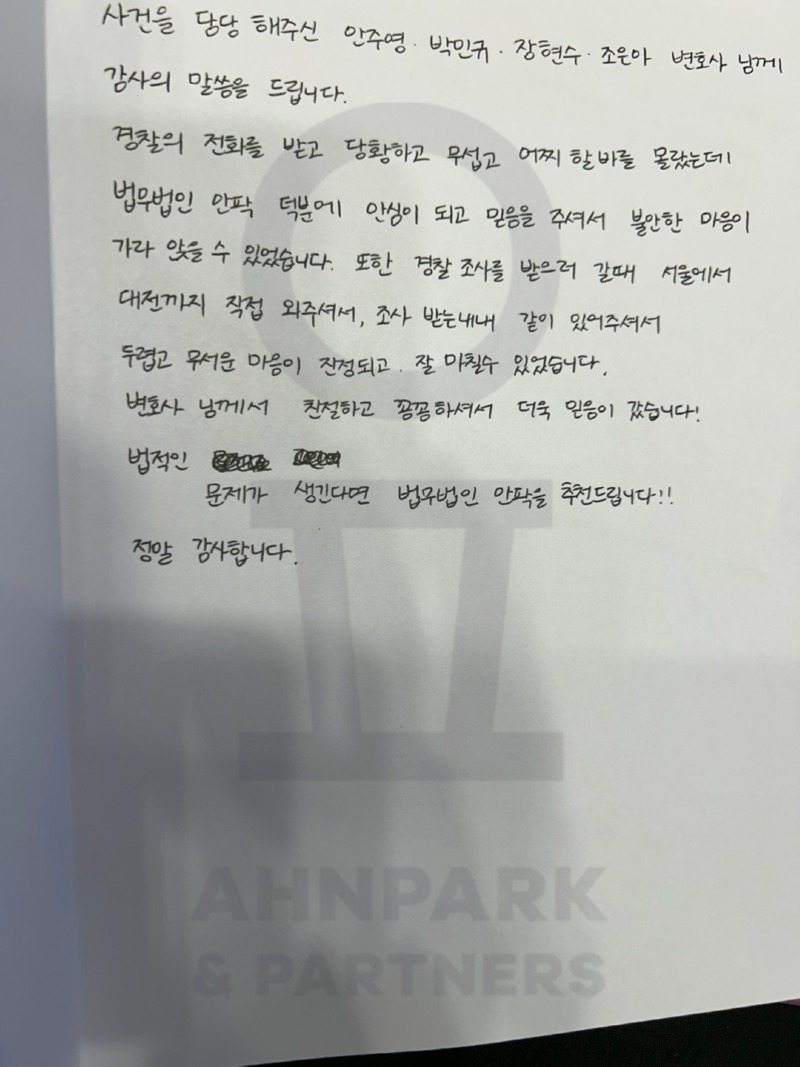 사건을 담당 해주신 안주영 · 박민규 · 장현수 · 조은아 변호사 님께
감사의 말씀을 드립니다.
경찰의 전화를 받고 당황하고 무섭고 어찌 할 바를 몰랐는데
법무법인 안팍 덕분에 안심이 되고 믿음을 주셔서 불안한 마음이
가라 앉을 수 있었습니다. 또한 경찰 조사를 받으러 갈때 서울에서
대전까지 직접 와주셔서, 조사 받는내내 같이 있어주셔서
두렵고 무서운 마음이 진정되고. 잘 마칠수 있었습니다.
변호사 님께서 친절하고 꼼꼼하셔서 더욱 믿음이 갔습니다!
법적인
문제가 생긴다면 법무법인 안팍을 추천드립니다!!
정말 감사합니다.
AHNPARK
& PARTNERS